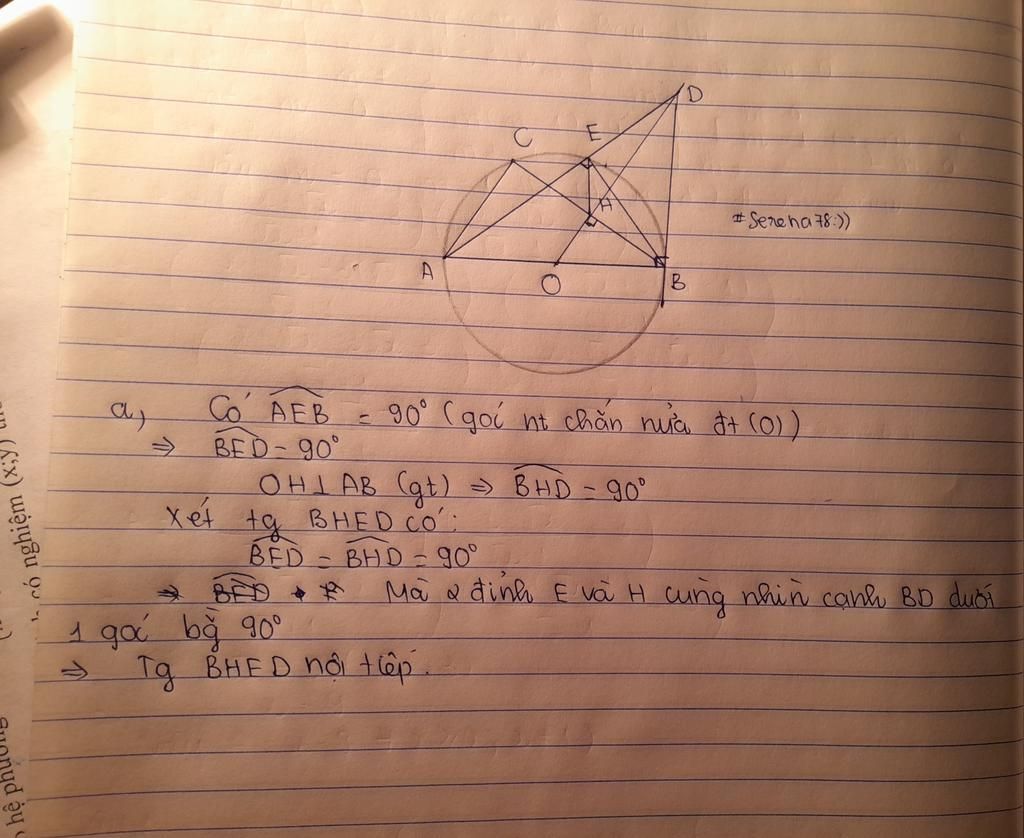 D
C
E
H
#Serena78:))
A
O
B
a, Có AEB = 90° (goí nt chắn nửa đt (O))
⇒ BED = 90°
OH⊥AB (gt) ⇒ BHD = 90°
Xét tg BHED có:
BED = BHD = 90°
⇒ BED Mà 2 đỉnh E và H cùng nhìn cạnh BD dưới
1 goć bg̀ 90°
⇒ Tg BHED nội tiếp.
có nghiệm (x;y)
hệ phương